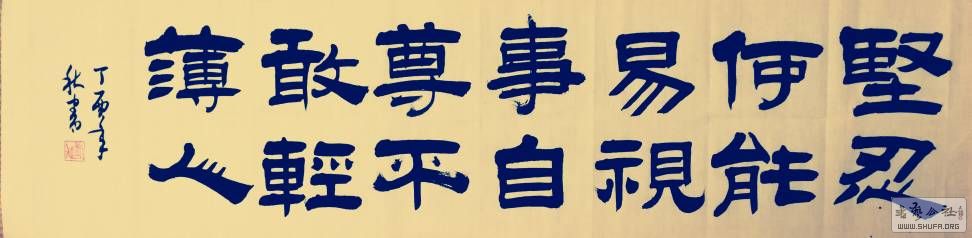 堅忍
何能
易視
事自
尊不
敢輕
薄人
丁酉年
秋書
书艺公社
WWW.SHUFA.ORG